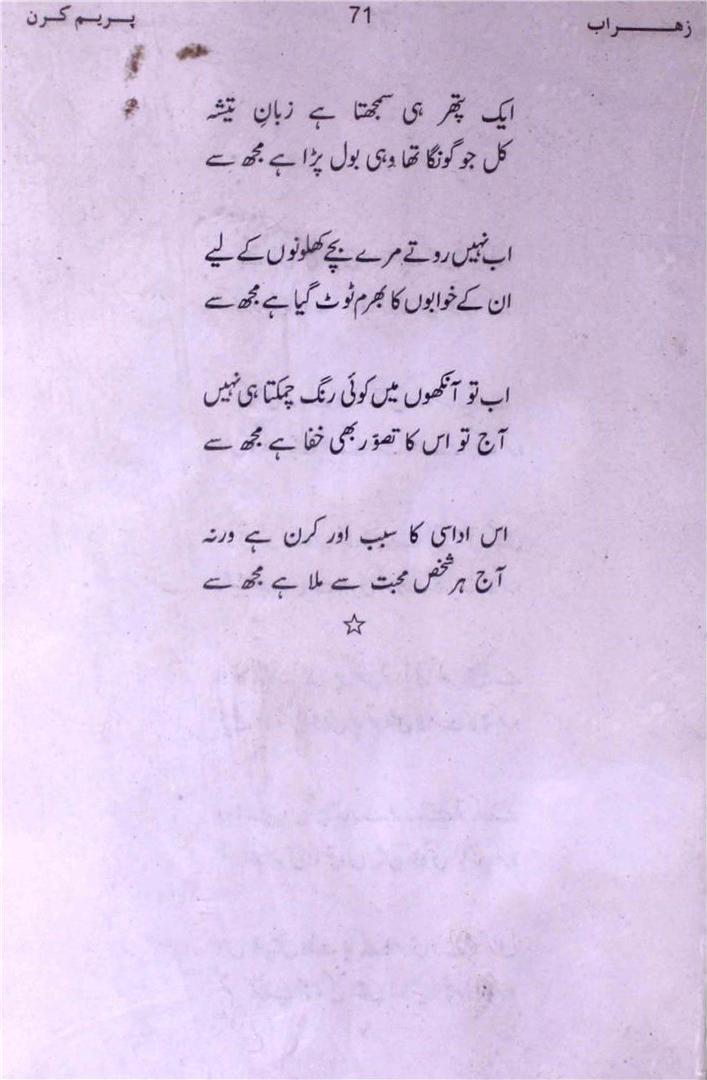 زهراب 71 پریم کرن
ایک پتھر ہی سمجھتا ہے زبانِ تیشہ
کل جو گونگا تھا وہی بول پڑا ہے مجھ سے
اب نہیں روتے مرے بچے کھلونوں کے لیے
ان کے خوابوں کا بھرم ٹوٹ گیا ہے مجھ سے
اب تو آنکھوں میں کوئی رنگ چمکتا ہی نہیں
آج تو اس کا تصوّر بھی خفا ہے مجھ سے
اس اداسی کا سبب اور کرن ہے ورنہ
آج ہر شخص محبت سے ملا ہے مجھ سے